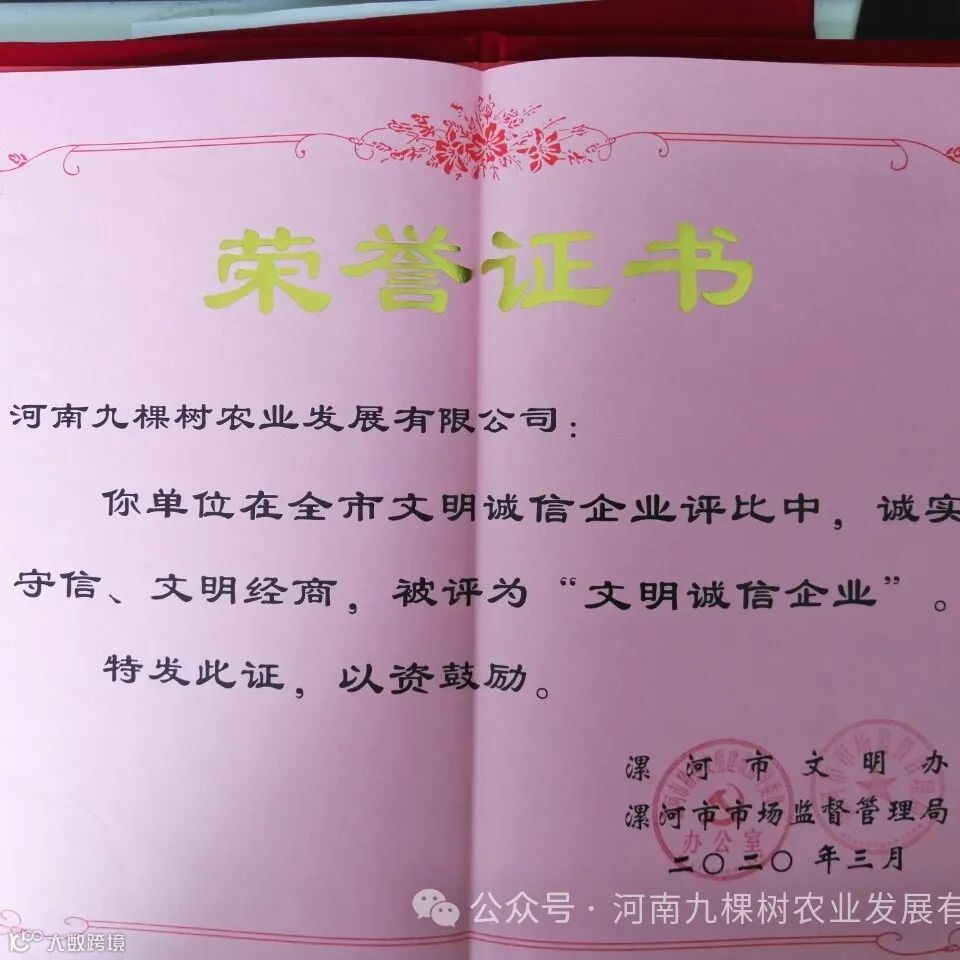 荣誉证书
河南九棵树农业发展有限公司：
你单位在全市文明诚信企业评比中，诚实
守信、文明经商，被评为“文明诚信企业”。
特发此证，以资鼓励。
漯河市文明办
漯河市市场监督管理局
二〇二〇年三月
办公室
公众号·河南九棵树农业发展有
大数跨境